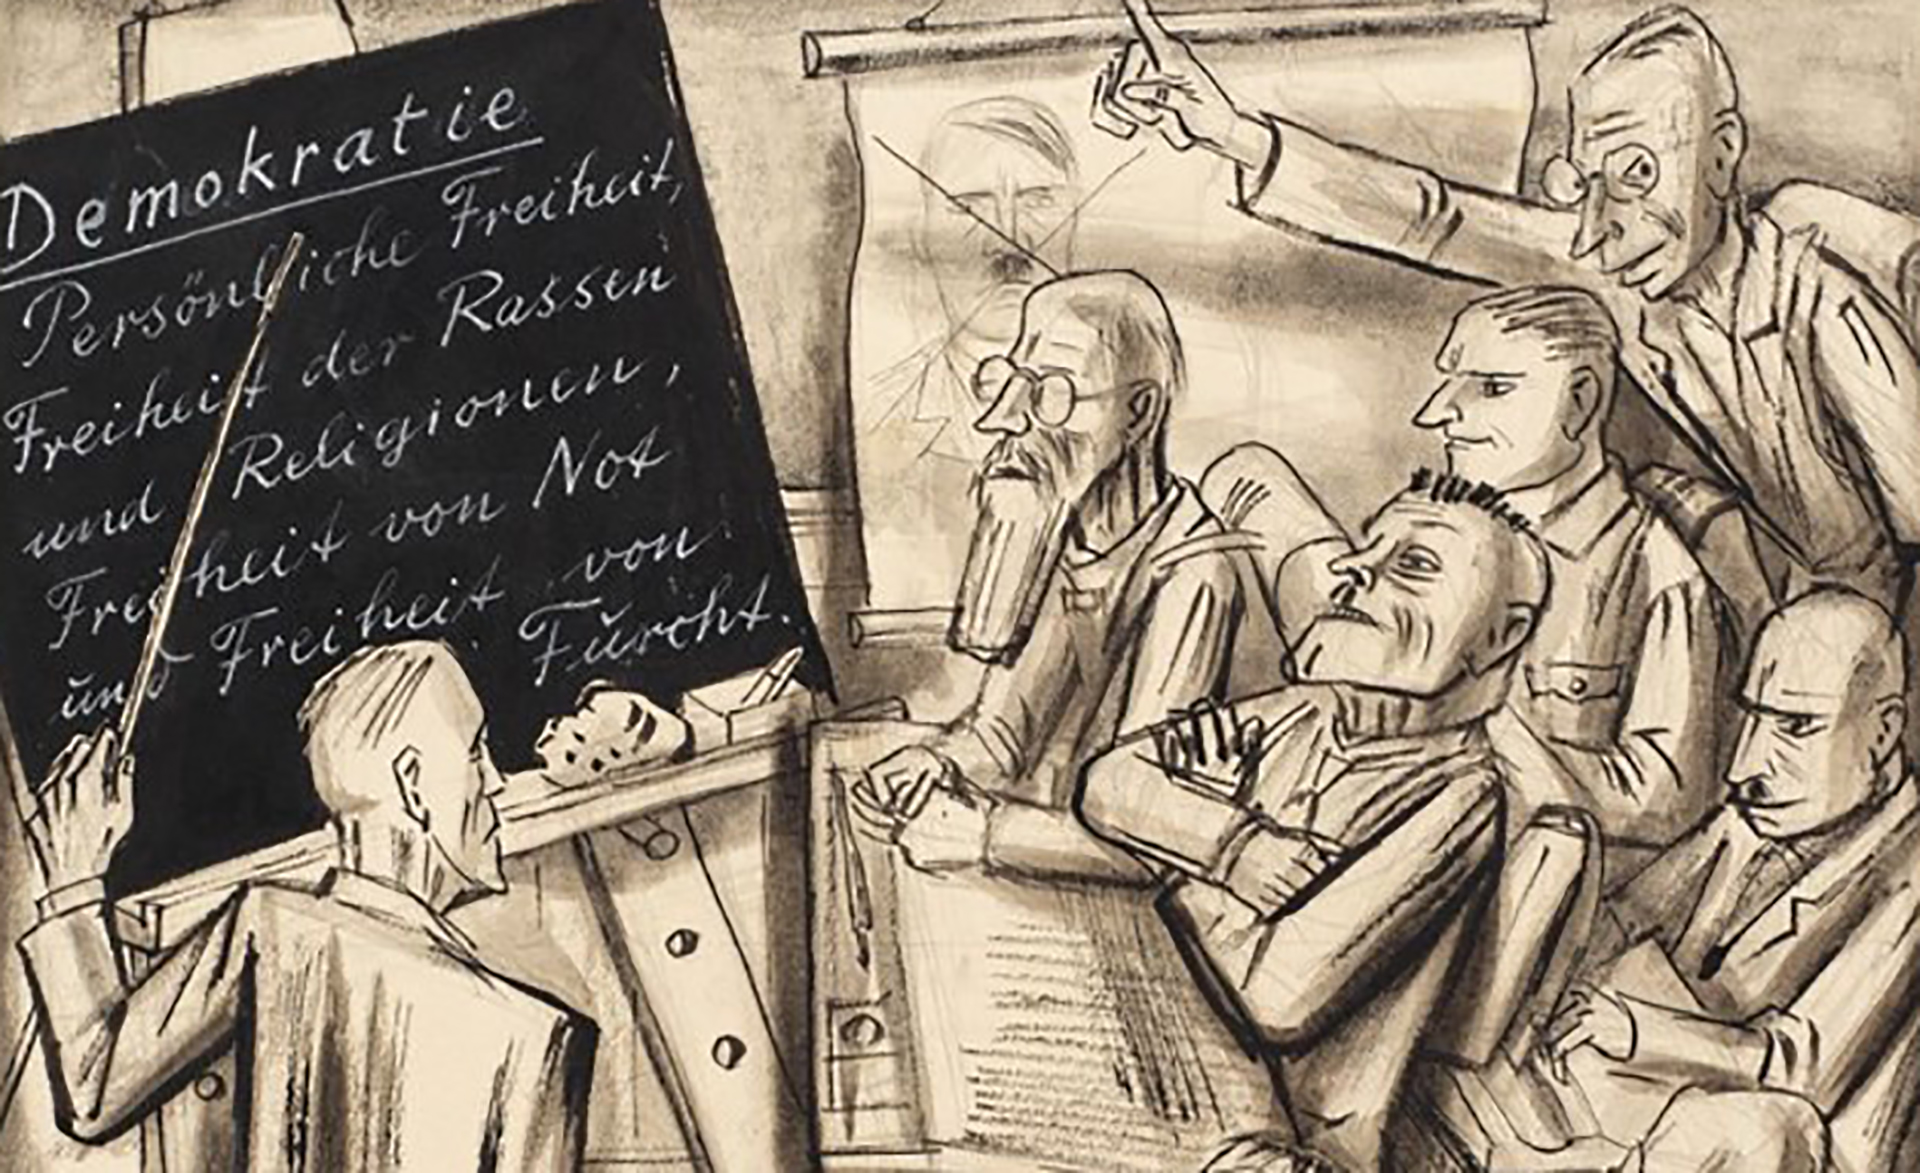 Demokratie
Persönliche Freiheit,
Freiheit der Rassen
und Religionen,
Freiheit von Not
und Freiheit von
Furcht.